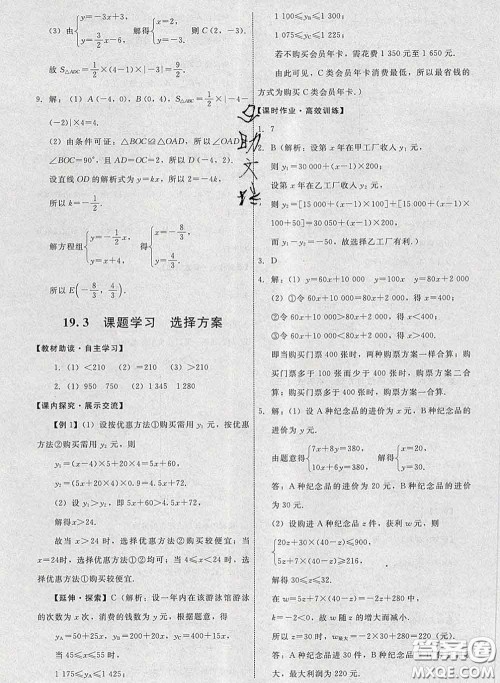 (3) 由{y=-3x+3, y=3/2x-6. 解得{x=2, y=-3. 则 C(2,-3).
故 S△ABC=1/2×(4-1)×|-3|=9/2.
9. 解:(1) A(-4,0), B(0,4), S△ABC=1/2×|-4-
(-2)|×4=4.
(2) 由条件可证:△BOC≌△OAD,所以∠OAD=
∠BOC=90°,且 AD=OC=2,所以 D(-4,2).
设直线 OD 的解析式为 y=kx,所以 2=-4k,
所以 k=-1/2.
解方程组{y=-1/2x, y=x+4, 得{x=-8/3, y=4/3.
所以 E(-8/3, 4/3).
19.3 课题学习 选择方案
【教材助读·自主学习】
1. (1) <210 (2) =210 (3) >210
2. (1) 950 750 (2) 1 345 1 280
【课内探究·展示交流】
【例 1】(1) 设按优惠方法①购买需用 y₁ 元,按优惠方
法②购买需用 y₂ 元,则
y₁=(x-4)×5+20×4=5x+60,
y₂=(5x+20×4)×0.9=4.5x+72.
(2) 设 y₁>y₂,即 5x+60>4.5x+72,
解得 x>24.
故当 x>24 时,选择优惠方法②购买较便宜;当
x=24时,选择优惠方法①②均可;当 4≤x<24 时,选
择优惠方法①购买较便宜.
【延伸·探索】C (解析:设一年内在该游泳馆游泳
的次数为 x 次,消费的钱数为 y 元,根据题意,得
yA=50+25x,yB=200+20x,yC=400+15x,
当 45≤x≤55 时,
1 175≤yA≤1 425;
1 100≤yB≤1 300;
1 075≤yC≤1 225;
若不购买会员年卡,需花费 1 350 元至 1 650 元.
由此可见,C 类会员年卡消费最低,所以最省钱的
方式为购买 C 类会员年卡.)
【课时作业·高效训练】
1. 7
2. B (解析:设第 x 年在甲工厂收入 y₁ 元,
则 y₁=30 000+(x-1)×200;
设第 x 年在乙工厂收入 y₂ 元,
则 y₂=[15 000+(x-1)×100]+[15 000+(x-1)×
100+50]=30 000+(x-1)×200+50.
而 y₁-y₂=-50,故选择乙工厂有利.)
3. D
4. 解:(1) y=60x+10 000 y=100x y=80x+2 000
(2) ①令 60x+10 000<80x+2 000,得 x>400;
②令 60x+10 000>80x+2 000,得 x<400;
③令 60x+10 000=80x+2 000,得 x=400.
即当购买门票 400 张时,两种购买方案一样合算;购
买门票大于 400 张时,购买方案一合算;购买门票小
于 400 张时,购买方案二合算.
5. 解:(1) 设 A 种纪念品的进价为 x元,B种纪念品的进价为 y
元.
由题意得{7x+8y=380, 10x+6y=380, 解得{x=20, y=30.
答:A 种纪念品的进价为 20 元,B 种纪念品的进价
为 30 元.
(2) 设购进 A 种纪念品 z 件,获利 w 元,则
{20z+30×(40-z)≤900, 5z+7×(40-z)≥216.
解得 30≤z≤32.
在 w=5z+7×(40-z)=-2z+280 中,
k=-2<0,故 w 随 z 的增大而减小.
所以当 z=30 时,w最大=-2×30+280=220(元).
答:当购进 A 种纪念品 30 件,B 种纪念品 10 件时利润最
大,最大利润为 220 元.
答案圈
MXQE.COM